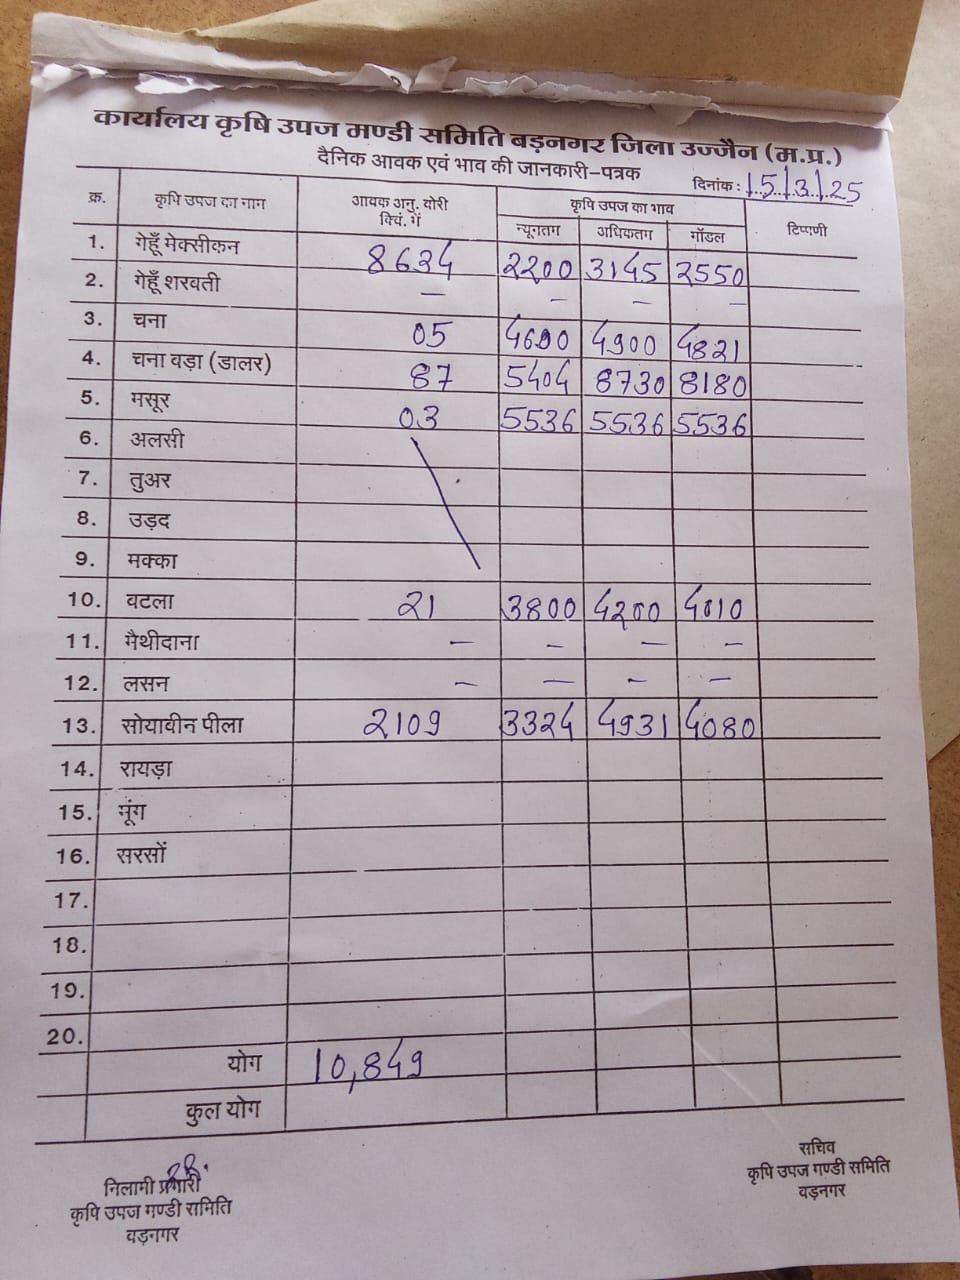 कार्यालय कृषि उपज मण्डी समिति बड़नगर जिला उज्जैन (म.प्र.)
दैनिक आवक एवं भाव की जानकारी-पत्रक
दिनांक : 15/3/25
क्र. कृषि उपज का नाम आवक अनु. बोरी क्विं. में कृषि उपज का भाव टिप्पणी
न्यूनतम अधिकतम मॉडल
1. गेहूँ मेक्सीकन 8624 2200 3145 2550
2. गेहूँ शरवती – – – –
3. चना 05 4600 4900 4821
4. चना वड़ा (डालर) 87 5404 8730 8180
5. मसूर 03 5536 5536 5536
6. अलसी
7. तुअर
8. उड़द
9. मक्का
10. वटला 21 3800 4200 4010
11. मैथीदाना – – – –
12. लसन – – – –
13. सोयावीन पीला 2109 3324 4931 4080
14. रायड़ा
15. मूंग
16. सरसों
17.
18.
19.
20.
योग 10,849
कुल योग
निलामी प्रभारी
कृषि उपज मण्डी समिति
वड़नगर
सचिव
कृषि उपज मण्डी समिति
वड़नगर